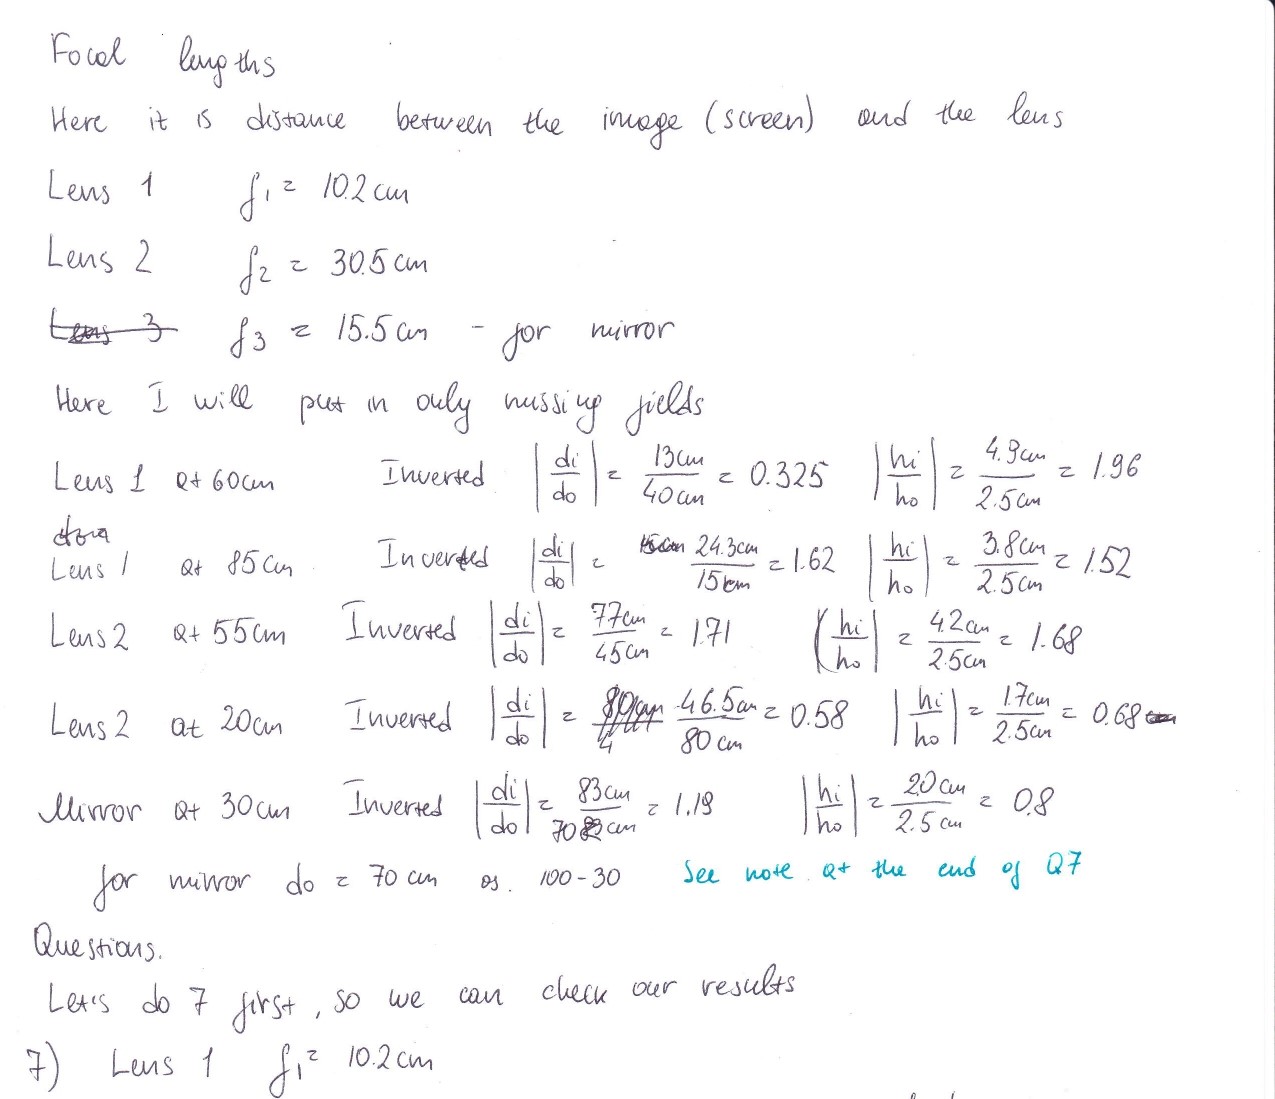 Focal lengths
Here it is distance between the image (screen) and the lens
Lens 1 f₁ = 10.2 cm
Lens 2 f₂ = 30.5 cm
Lens 3 f₃ = 15.5 cm - for mirror
Here I will put in only missing fields
Lens 1 at 60cm Inverted |di/do| = 13cm/40cm = 0.325 |hi/ho| = 4.9cm/2.5cm = 1.96
Lens 1 at 85cm Inverted |di/do| = 24.3cm/15cm = 1.62 |hi/ho| = 3.8cm/2.5cm = 1.52
Lens 2 at 55cm Inverted |di/do| = 77cm/45cm = 1.71 |hi/ho| = 4.2cm/2.5cm = 1.68
Lens 2 at 20cm Inverted |di/do| = 46.5cm/80cm = 0.58 |hi/ho| = 1.7cm/2.5cm = 0.68
Mirror at 30cm Inverted |di/do| = 83cm/70cm = 1.19 |hi/ho| = 2.0cm/2.5cm = 0.8
for mirror do = 70 cm as. 100-30 See note at the end of Q7
Questions.
Let's do 7 first, so we can check our results
7) Lens 1 f₁ = 10.2 cm